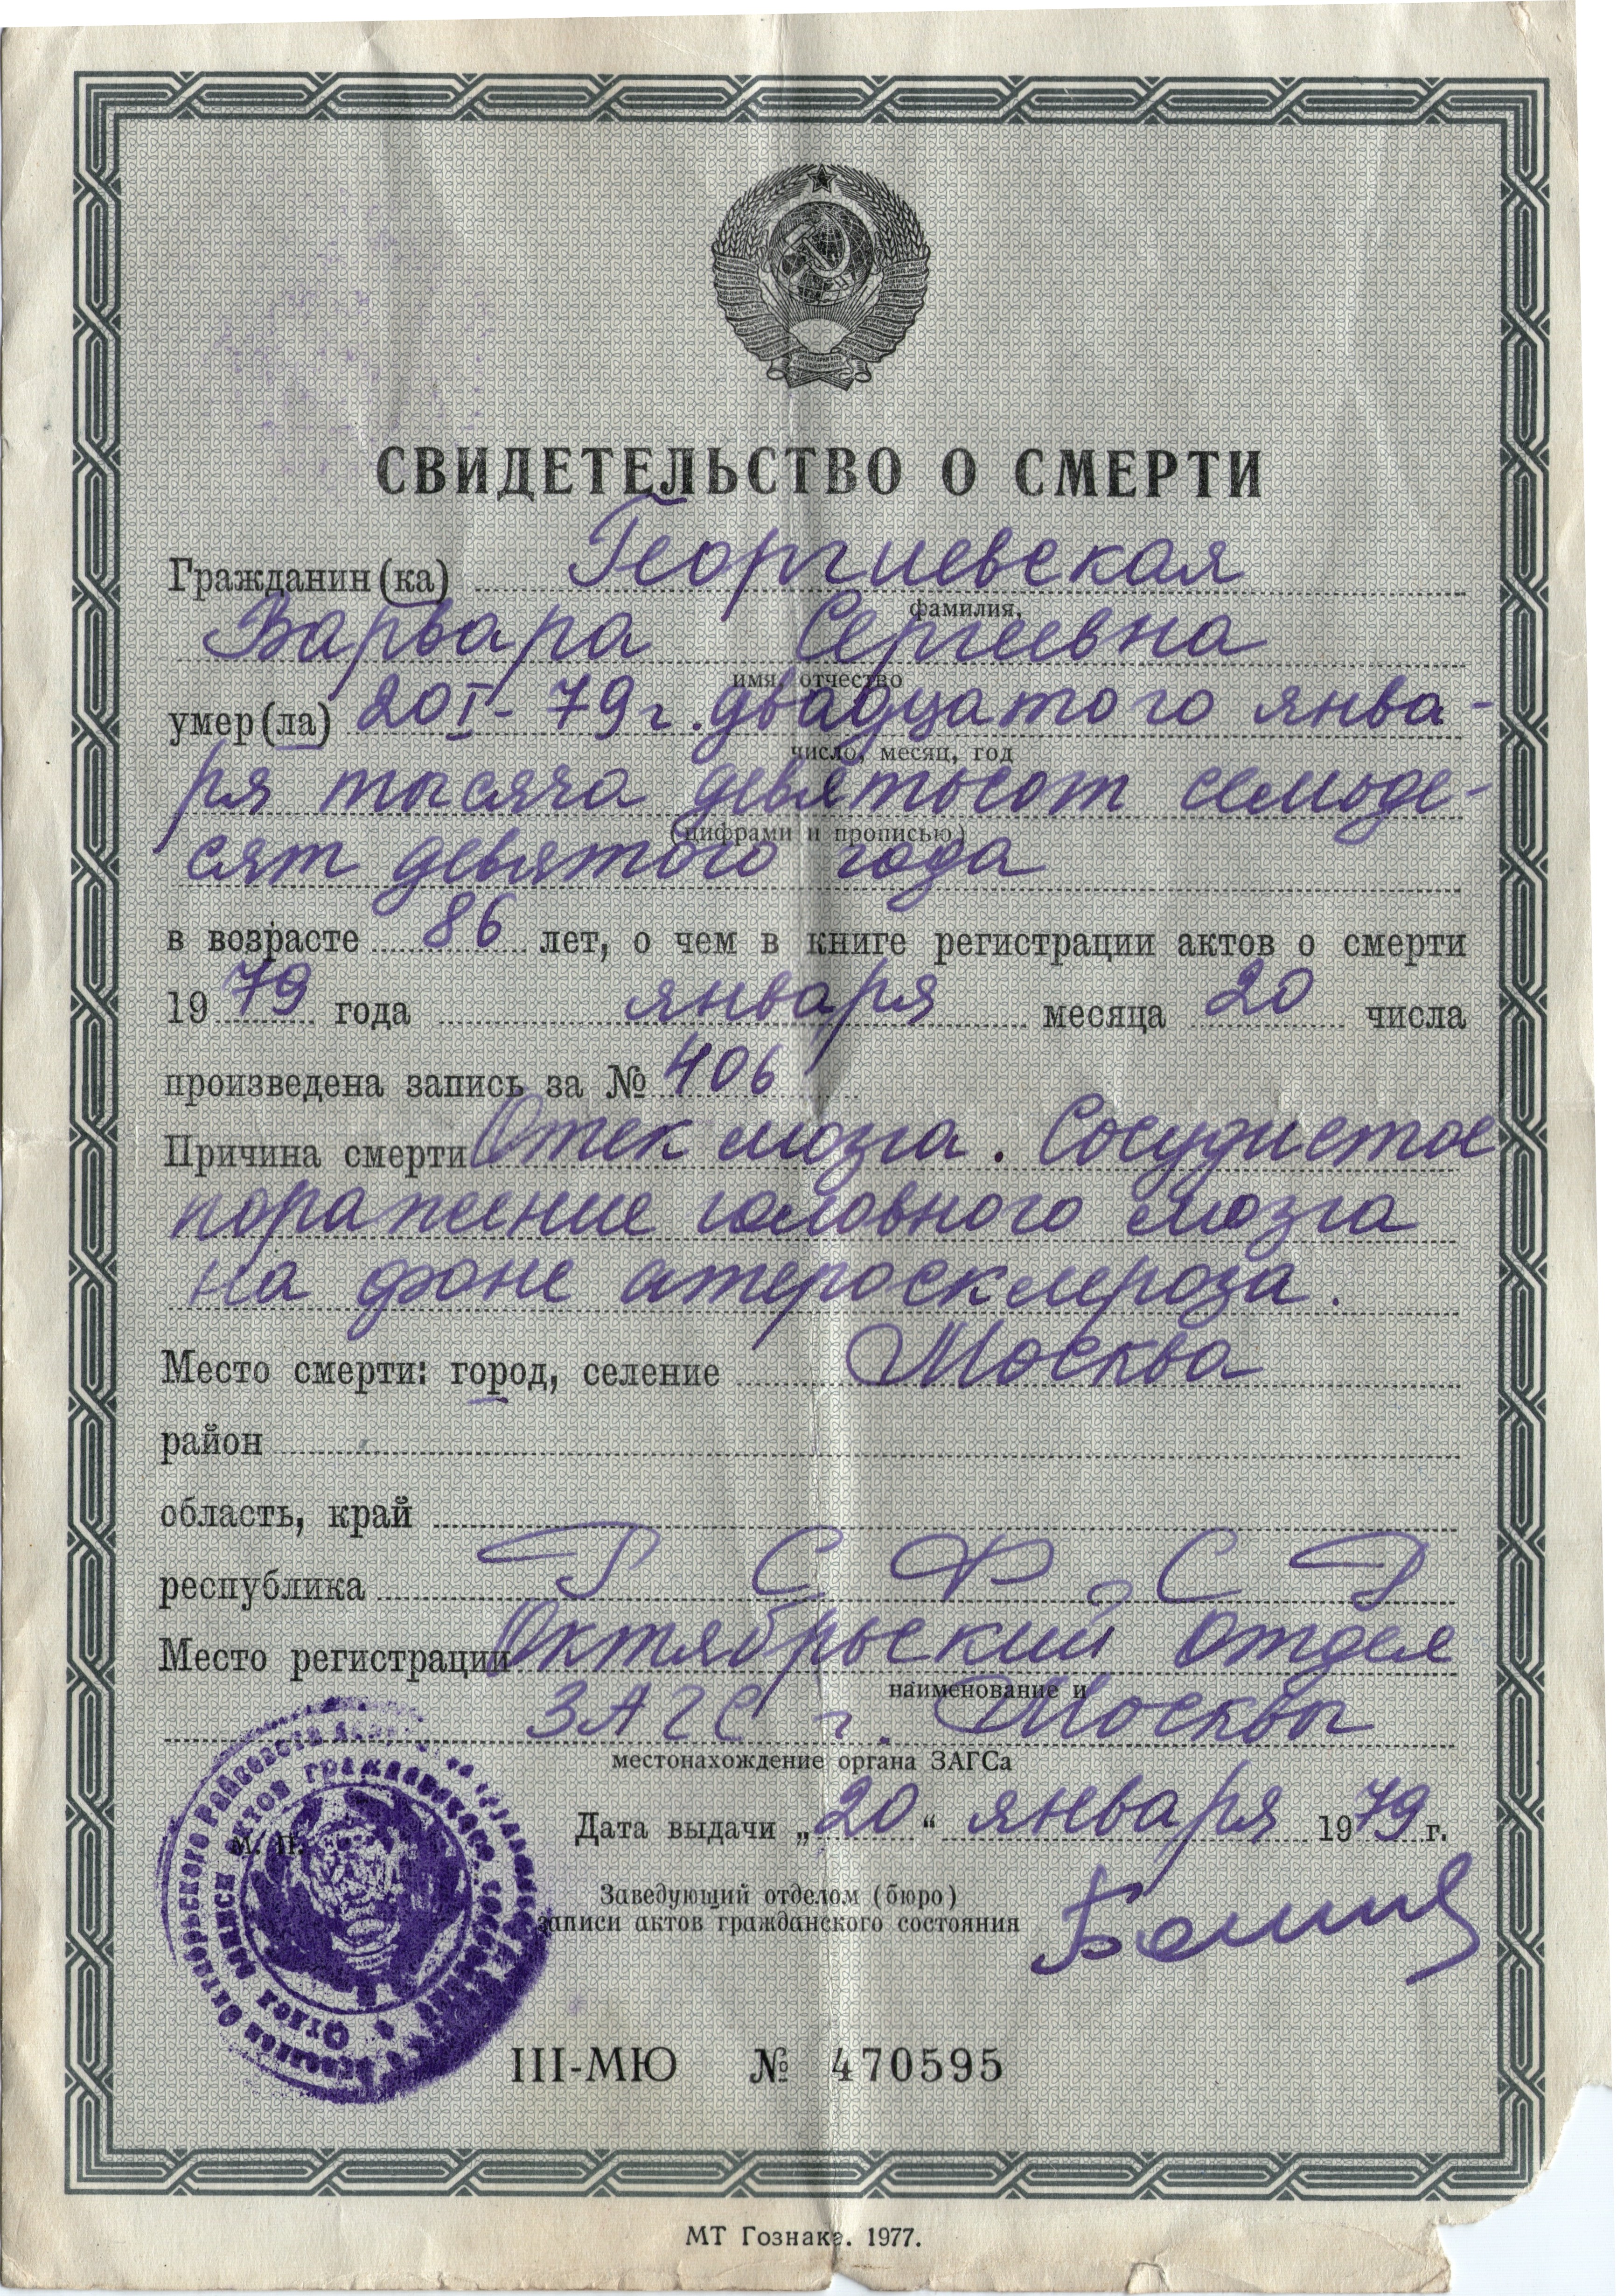 СВИДЕТЕЛЬСТВО О СМЕРТИ
Гражданин(ка) Георгиевская
фамилия,
Варвара Сергеевна
имя, отчество
умер(ла) 20 I - 79 г. двадцатого янва-
число, месяц, год
ря тысяча девятьсот семьде-
(цифрами и прописью)
сят девятого года
в возрасте 86 лет, о чем в книге регистрации актов о смерти
1979 года января месяца 20 числа
произведена запись за № 406
Причина смерти Отек мозга. Сосудистое
поражение головного мозга
на фоне атеросклероза.
Место смерти: город, селение Москва
район
область, край
республика РСФСР
Место регистрации Октябрьский отдел
наименование и
ЗАГС г. Москвы
местонахождение органа ЗАГСа
Дата выдачи „20“ января 1979 г.
М. П.
Заведующий отделом (бюро)
записи актов гражданского состояния
III-МЮ № 470595
МТ Гознака. 1977.